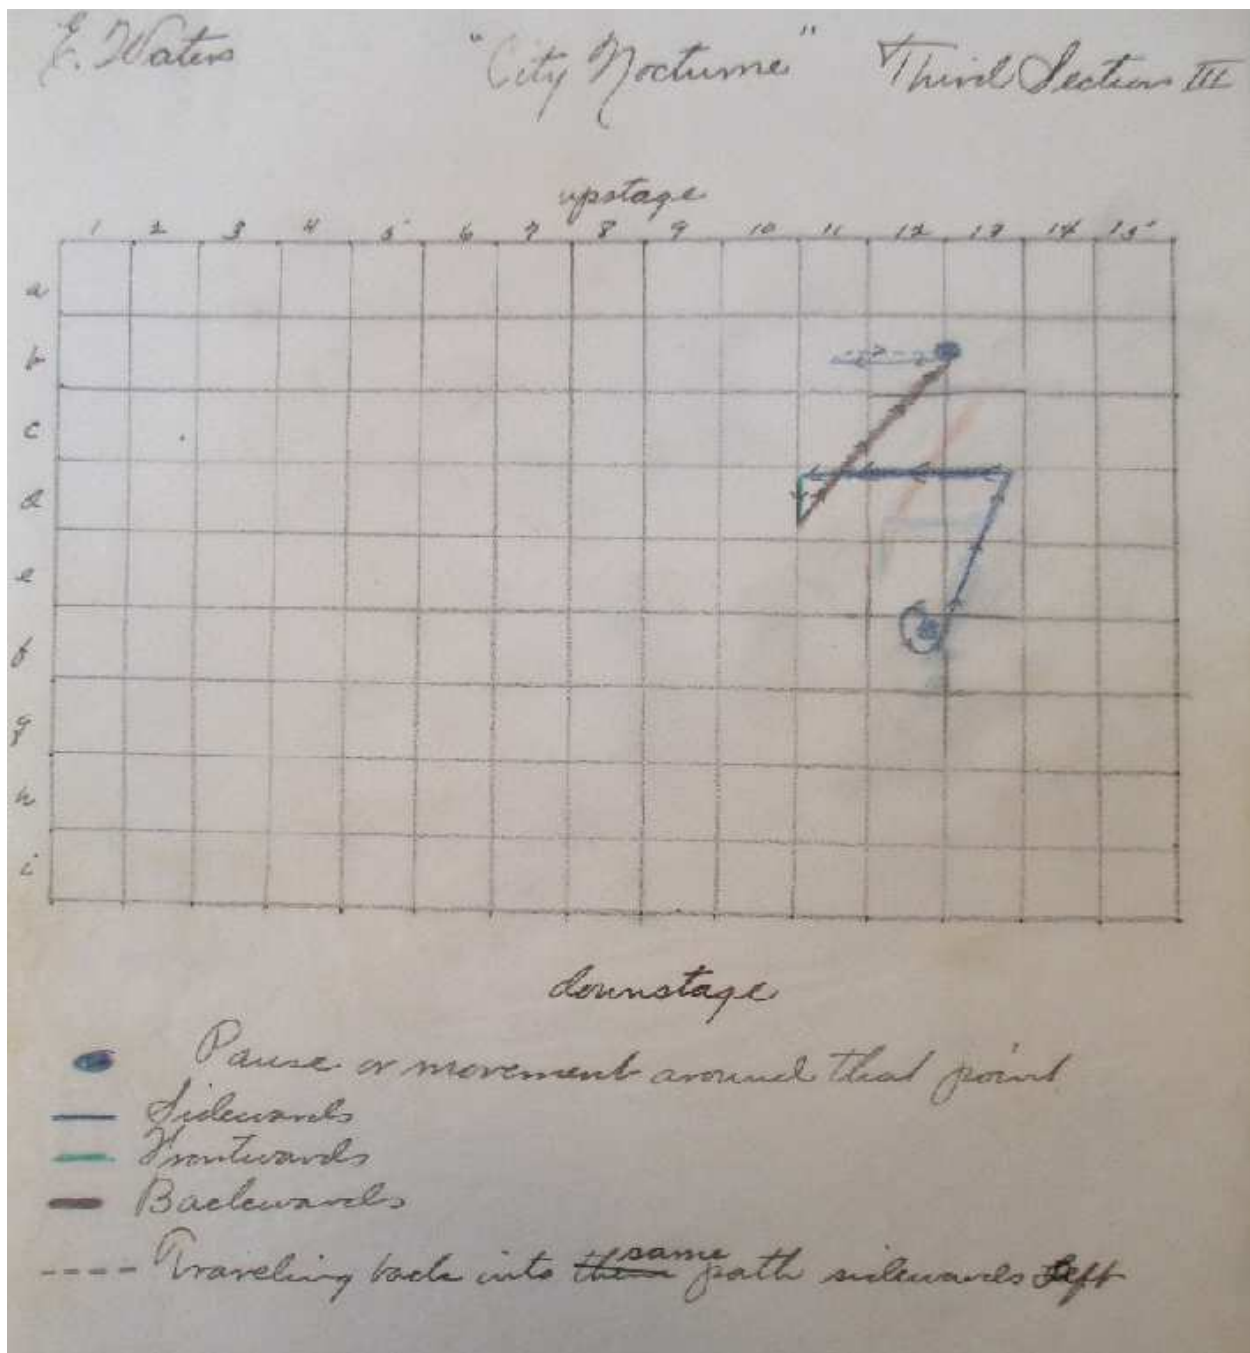 E. Waters "City Nocturne" Third Section III
upstage
1 2 3 4 5 6 7 8 9 10 11 12 13 14 15
a
b
c
d
e
f
g
h
i
downstage
Pause or movement around that point
Sidewards
Frontwards
Backwards
Traveling back into the same path sidewards left